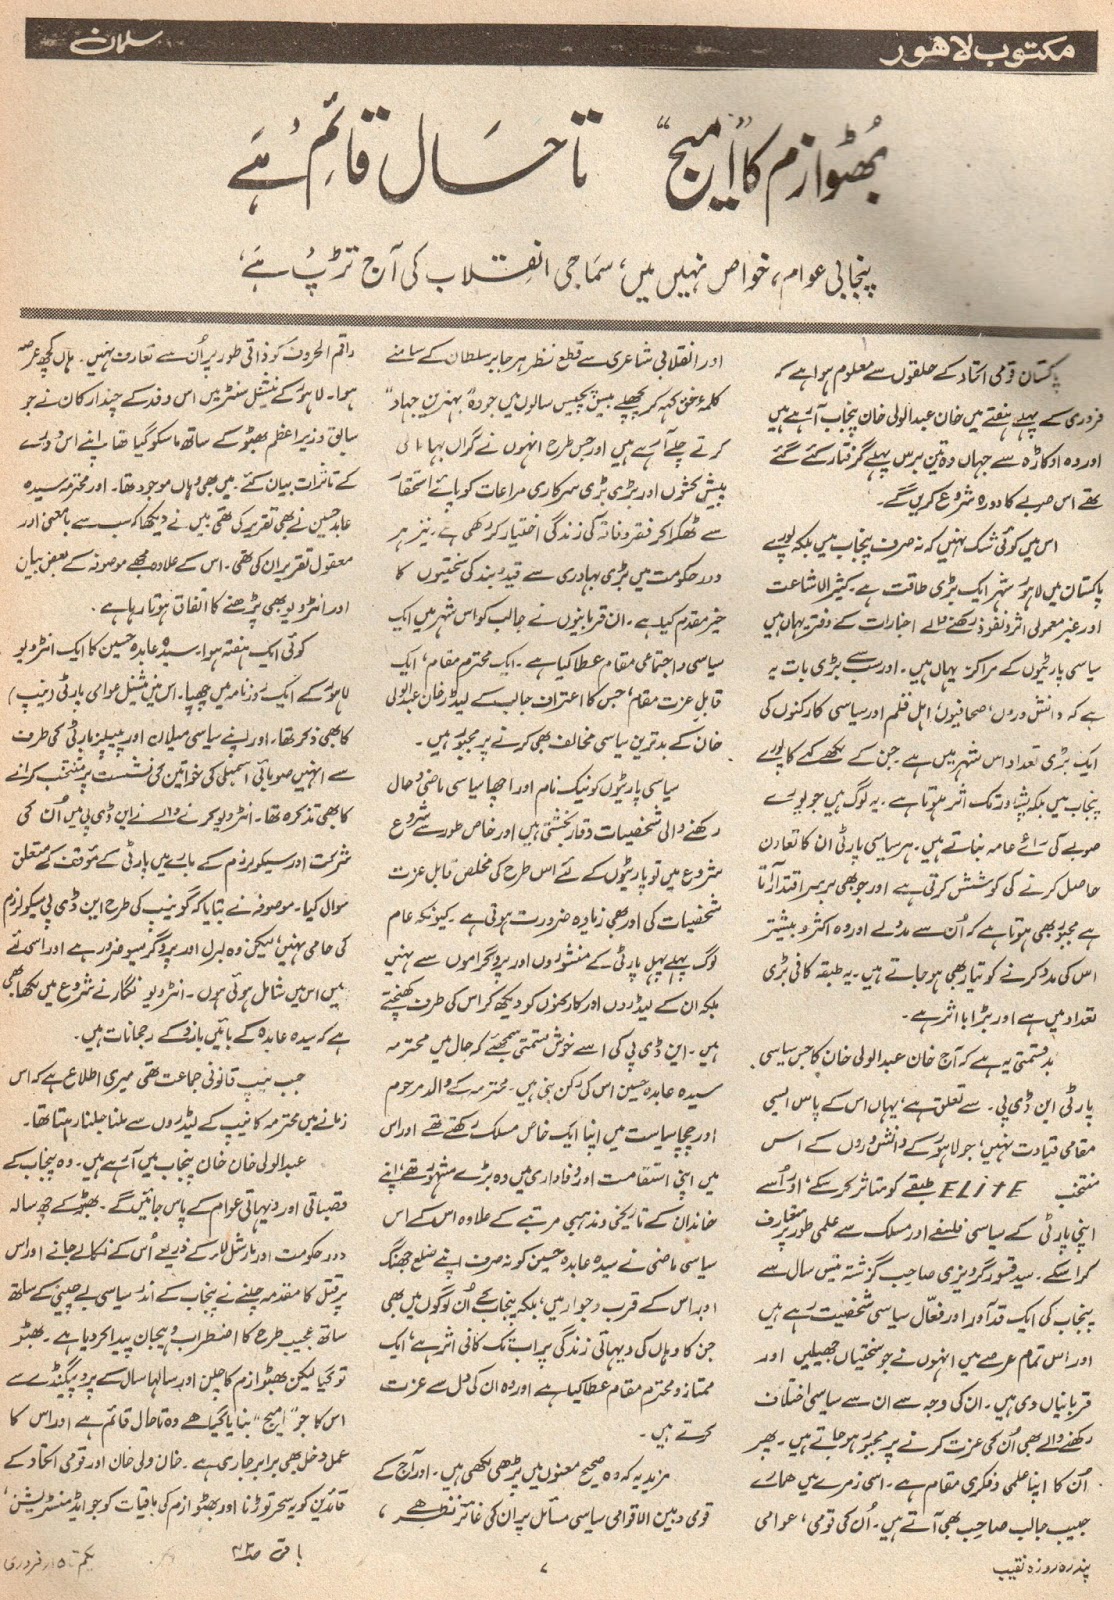 مکتوب لاہور
سلمان
بھٹو ازم کا "امیج" تا حال قائم ہے
پنجابی عوام، خواص نہیں میں، سماجی انقلاب کی آج تڑپ ہے،
پاکستان قومی اتحاد کے حلقوں سے معلوم ہوا ہے کہ
فروری کے پہلے ہفتے میں خان عبدالولی خان پنجاب آ رہے ہیں
اور وہ اوکاڑہ سے جہاں وہ تین برس پہلے گرفتار کئے گئے
تھے اس صوبے کا دورہ شروع کریں گے۔
اس میں کوئی شک نہیں کہ نہ صرف پنجاب میں بلکہ پورے
پاکستان میں لاہور شہر ایک بڑی طاقت ہے۔ کثیر الاشاعت
اور غیر معمولی اثر و نفوذ رکھنے والے اخبارات کے دفتر یہاں ہیں
سیاسی پارٹیوں کے مراکز یہاں ہیں۔ اور سب سے بڑی بات یہ
ہے کہ دانش وروں، صحافیوں، اہل قلم اور سیاسی کارکنوں کی
ایک بڑی تعداد اس شہر میں ہے جن کے لکھے کہے کا پورے
پنجاب میں بلکہ پشاور تک اثر ہوتا ہے۔ یہ لوگ ہیں جو پورے
صوبے کی رائے عامہ بناتے ہیں۔ ہر سیاسی پارٹی ان کا تعاون
حاصل کرنے کی کوشش کرتی ہے اور جو بھی برسر اقتدار آتا
ہے مجبور بھی ہوتا ہے کہ اُن سے مدد لے اور وہ اکثر و بیشتر
اس کی مدد کرنے کو تیار بھی ہو جاتے ہیں۔ یہ طبقہ کافی بڑی
تعداد میں ہے اور بڑا با اثر ہے۔
بدقسمتی یہ ہے کہ آج خان عبدالولی خان کا جس سیاسی
پارٹی این ڈی پی۔ سے تعلق ہے، یہاں اس کے پاس ایسی
مقامی قیادت نہیں، جو لاہور کے دانش وروں کے اس
منتخب ELITE طبقے کو متاثر کر سکے، اور اُسے
اپنی پارٹی کے سیاسی فلسفے اور مسلک سے علمی طور پر متعارف
کرا سکے۔ سید قسور گردیزی صاحب گزشتہ تیس سال سے
پنجاب کی ایک قد آور اور فعال سیاسی شخصیت رہے ہیں
اور اس تمام عرصے میں انہوں نے جو سختیاں جھیلیں اور
قربانیاں دی ہیں۔ ان کی وجہ سے ان سے سیاسی اختلاف
رکھنے والے بھی اُن کی عزت کرنے پر مجبور ہو جاتے ہیں۔ پھر
اُن کا اپنا علمی و فکری مقام ہے۔ اسی زمرے میں ہمارے
حبیب جالب صاحب بھی آتے ہیں۔ اُن کی قومی، عوامی
اور انقلابی شاعری سے قطع نظر ہر جابر سلطان کے سامنے
کلمۂ حق کہہ کر پچھلے بیس پچیس سالوں میں جو وہ "بہترین جہاد"
کرتے چلے آ رہے ہیں اور جس طرح انہوں نے گراں بہا مالی
پیش کشوں اور بڑی بڑی سرکاری مراعات کو پائے استحقار
سے ٹھکرا کر فقر و فاقہ کی زندگی اختیار کر رکھی ہے۔ نیز ہر
دور حکومت میں بڑی بہادری سے قید و بند کی سختیوں کا
خیر مقدم کیا ہے۔ ان قربانیوں نے جالب کو اس شہر میں ایک
سیاسی و اجتماعی مقام عطا کیا ہے۔ ایک محترم مقام، ایک
قابل عزت مقام، جس کا اعتراف جالب کے لیڈر خان عبدالولی
خان کے بدترین سیاسی مخالف بھی کرنے پر مجبور ہیں۔
سیاسی پارٹیوں کو نیک نام اور اچھا سیاسی ماضی و حال
رکھنے والی شخصیات وقار بخشتی ہیں اور خاص طور سے شروع
شروع میں تو پارٹیوں کے لئے اس طرح کی مخلص قابل عزت
شخصیات کی اور بھی زیادہ ضرورت ہوتی ہے۔ کیونکہ عام
لوگ پہلے پہل پارٹی کے منشوروں اور پروگراموں سے نہیں
بلکہ ان کے لیڈروں اور کارکنوں کو دیکھ کر اس کی طرف کھنچتے
ہیں۔ این ڈی پی کی اسے خوش قسمتی سمجھئے کہ حال میں محترمہ
سیدہ عابدہ حسین اس کی رکن بنی ہیں۔ محترمہ کے والد مرحوم
اور چچا سیاست میں اپنا ایک خاص مسلک رکھتے تھے اور اس
میں اپنی استقامت اور وفاداری میں وہ بڑے مشہور تھے، اپنے
خاندان کے تاریخی و مذہبی مرتبے کے علاوہ اس کے اس
سیاسی ماضی نے سیدہ عابدہ حسین کو نہ صرف اپنے ضلع جھنگ
اور اس کے قرب و جوار میں، بلکہ پنجاب کے اُن لوگوں میں بھی
جن کا وہاں کی دیہاتی زندگی پر اب تک کافی اثر ہے، ایک
ممتاز و محترم مقام عطا کیا ہے اور وہ ان کی دل سے عزت
کرتے ہیں۔
مزید یہ کہ وہ صحیح معنوں میں پڑھی لکھی ہیں۔ اور آج کے
قومی و بین الاقوامی سیاسی مسائل پر ان کی غائر نظر ہے،
راقم الحروف کو ذاتی طور پر اُن سے تعارف نہیں۔ ہاں کچھ عرصہ
ہوا۔ لاہور کے نیشنل سنٹر میں اس وفد کے چند ارکان نے جو
سابق وزیر اعظم بھٹو کے ساتھ ماسکو گیا تھا اپنے اس دورے
کے تاثرات بیان کئے۔ میں بھی وہاں موجود تھا۔ اور محترمہ سیدہ
عابدہ حسین نے بھی تقریر کی تھی میں نے دیکھا کہ سب سے بامعنی اور
معقول تقریر ان کی تھی۔ اس کے علاوہ مجھے موصوفہ کے بعض بیان
اور انٹرویو بھی پڑھنے کا اتفاق ہوتا رہا ہے۔
کوئی ایک ہفتہ ہوا۔ سیدہ عابدہ حسین کا ایک انٹرویو
لاہور کے ایک روزنامہ میں چھپا۔ اس میں نیشنل عوامی پارٹی (نیپ)
کا بھی ذکر تھا۔ اور اپنے سیاسی میلان اور پیپلز پارٹی کی طرف
سے انہیں صوبائی اسمبلی کی خواتین کی نشست پر منتخب کرانے
کا بھی تذکرہ تھا۔ انٹرویو کرنے والے نے این ڈی پی میں اُن کی
شرکت اور سیکولرزم کے بارے میں پارٹی کے موقف کے متعلق
سوال کیا۔ موصوفہ نے بتایا کہ گو نیپ کی طرح این ڈی پی سیکولرزم
کی حامی نہیں، لیکن وہ لبرل اور پروگریسو ضرور ہے اور اسی لئے
میں اس میں شامل ہوئی ہوں۔ انٹرویو نگار نے شروع میں لکھا بھی
ہے کہ سیدہ عابدہ کے بائیں بازو کے رجحانات ہیں۔
جب نیپ قانونی جماعت تھی میری اطلاع ہے کہ اس
زمانے میں محترمہ کا نیپ کے لیڈروں سے ملنا جلنا رہتا تھا۔
عبدالولی خان خان پنجاب میں آ رہے ہیں۔ وہ پنجاب کے
قصباتی اور دیہاتی عوام کے پاس جائیں گے۔ بھٹو کے چھ سالہ
دور حکومت اور مارشل لاء کے ذریعے اُس کے نکالے جانے اور اس
پر قتل کا مقدمہ چلنے نے پنجاب کے اندر سیاسی بے چینی کے ساتھ
ساتھ عجیب طرح کا اضطراب و ہیجان پیدا کر دیا ہے۔ بھٹو
تو گیا لیکن بھٹو ازم کا چلن اور سالہا سال کے پروپیگنڈے سے
اس کا جو "امیج" بنایا گیا ہے وہ تا حال قائم ہے اور اس کا
عمل دخل بھی برابر جاری ہے۔ خان ولی خان اور قومی اتحاد کے
قائدین کو یہ سحر توڑنا اور بھٹو ازم کی باقیات کو جو ایڈمنسٹریشن،
باقی صفحہ
پندرہ روزہ نقیب
۷
یکم تا ۱۵ فروری